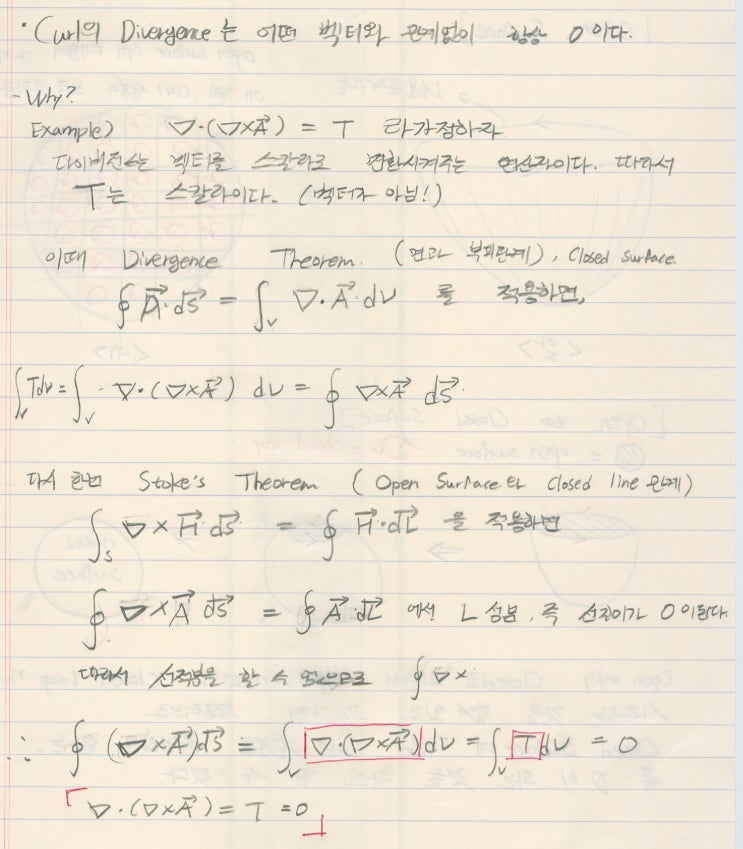 · Curl의 Divergence는 어떤 벡터와 관계없이 항상 0이다.
- Why?
Example) ∇·(∇×A⃗) = T 라 가정하자.
다이버전스는 벡터를 스칼라로 변환시켜주는 연산자이다. 따라서
T는 스칼라이다. (벡터가 아님!)
이때 Divergence Theorem. (면과 부피관계), Closed Surface.
∮ A⃗·ds⃗ = ∫ᵥ ∇·A⃗ dv 를 적용하면,
∫ᵥ Tdv = ∫ᵥ ∇·(∇×A⃗) dv = ∮ ∇×A⃗ ds⃗.
다시 한번 Stoke's Theorem (Open Surface와 closed line 관계)
∫s ∇×H⃗·ds⃗ = ∮ H⃗·dL⃗ 을 적용하면
∮ ∇×A⃗ ds⃗ = ∮ A⃗·dL⃗ 에선 L 성분, 즉 선적이가 0이된다.
따라서 선적분을 할 수 없으므로 ∮ ∇×
∴ ∮ (∇×A⃗)ds⃗ = ∫ᵥ ∇·(∇×A⃗) dv = ∫ᵥ T dv = 0
「∇·(∇×A⃗) = T = 0」